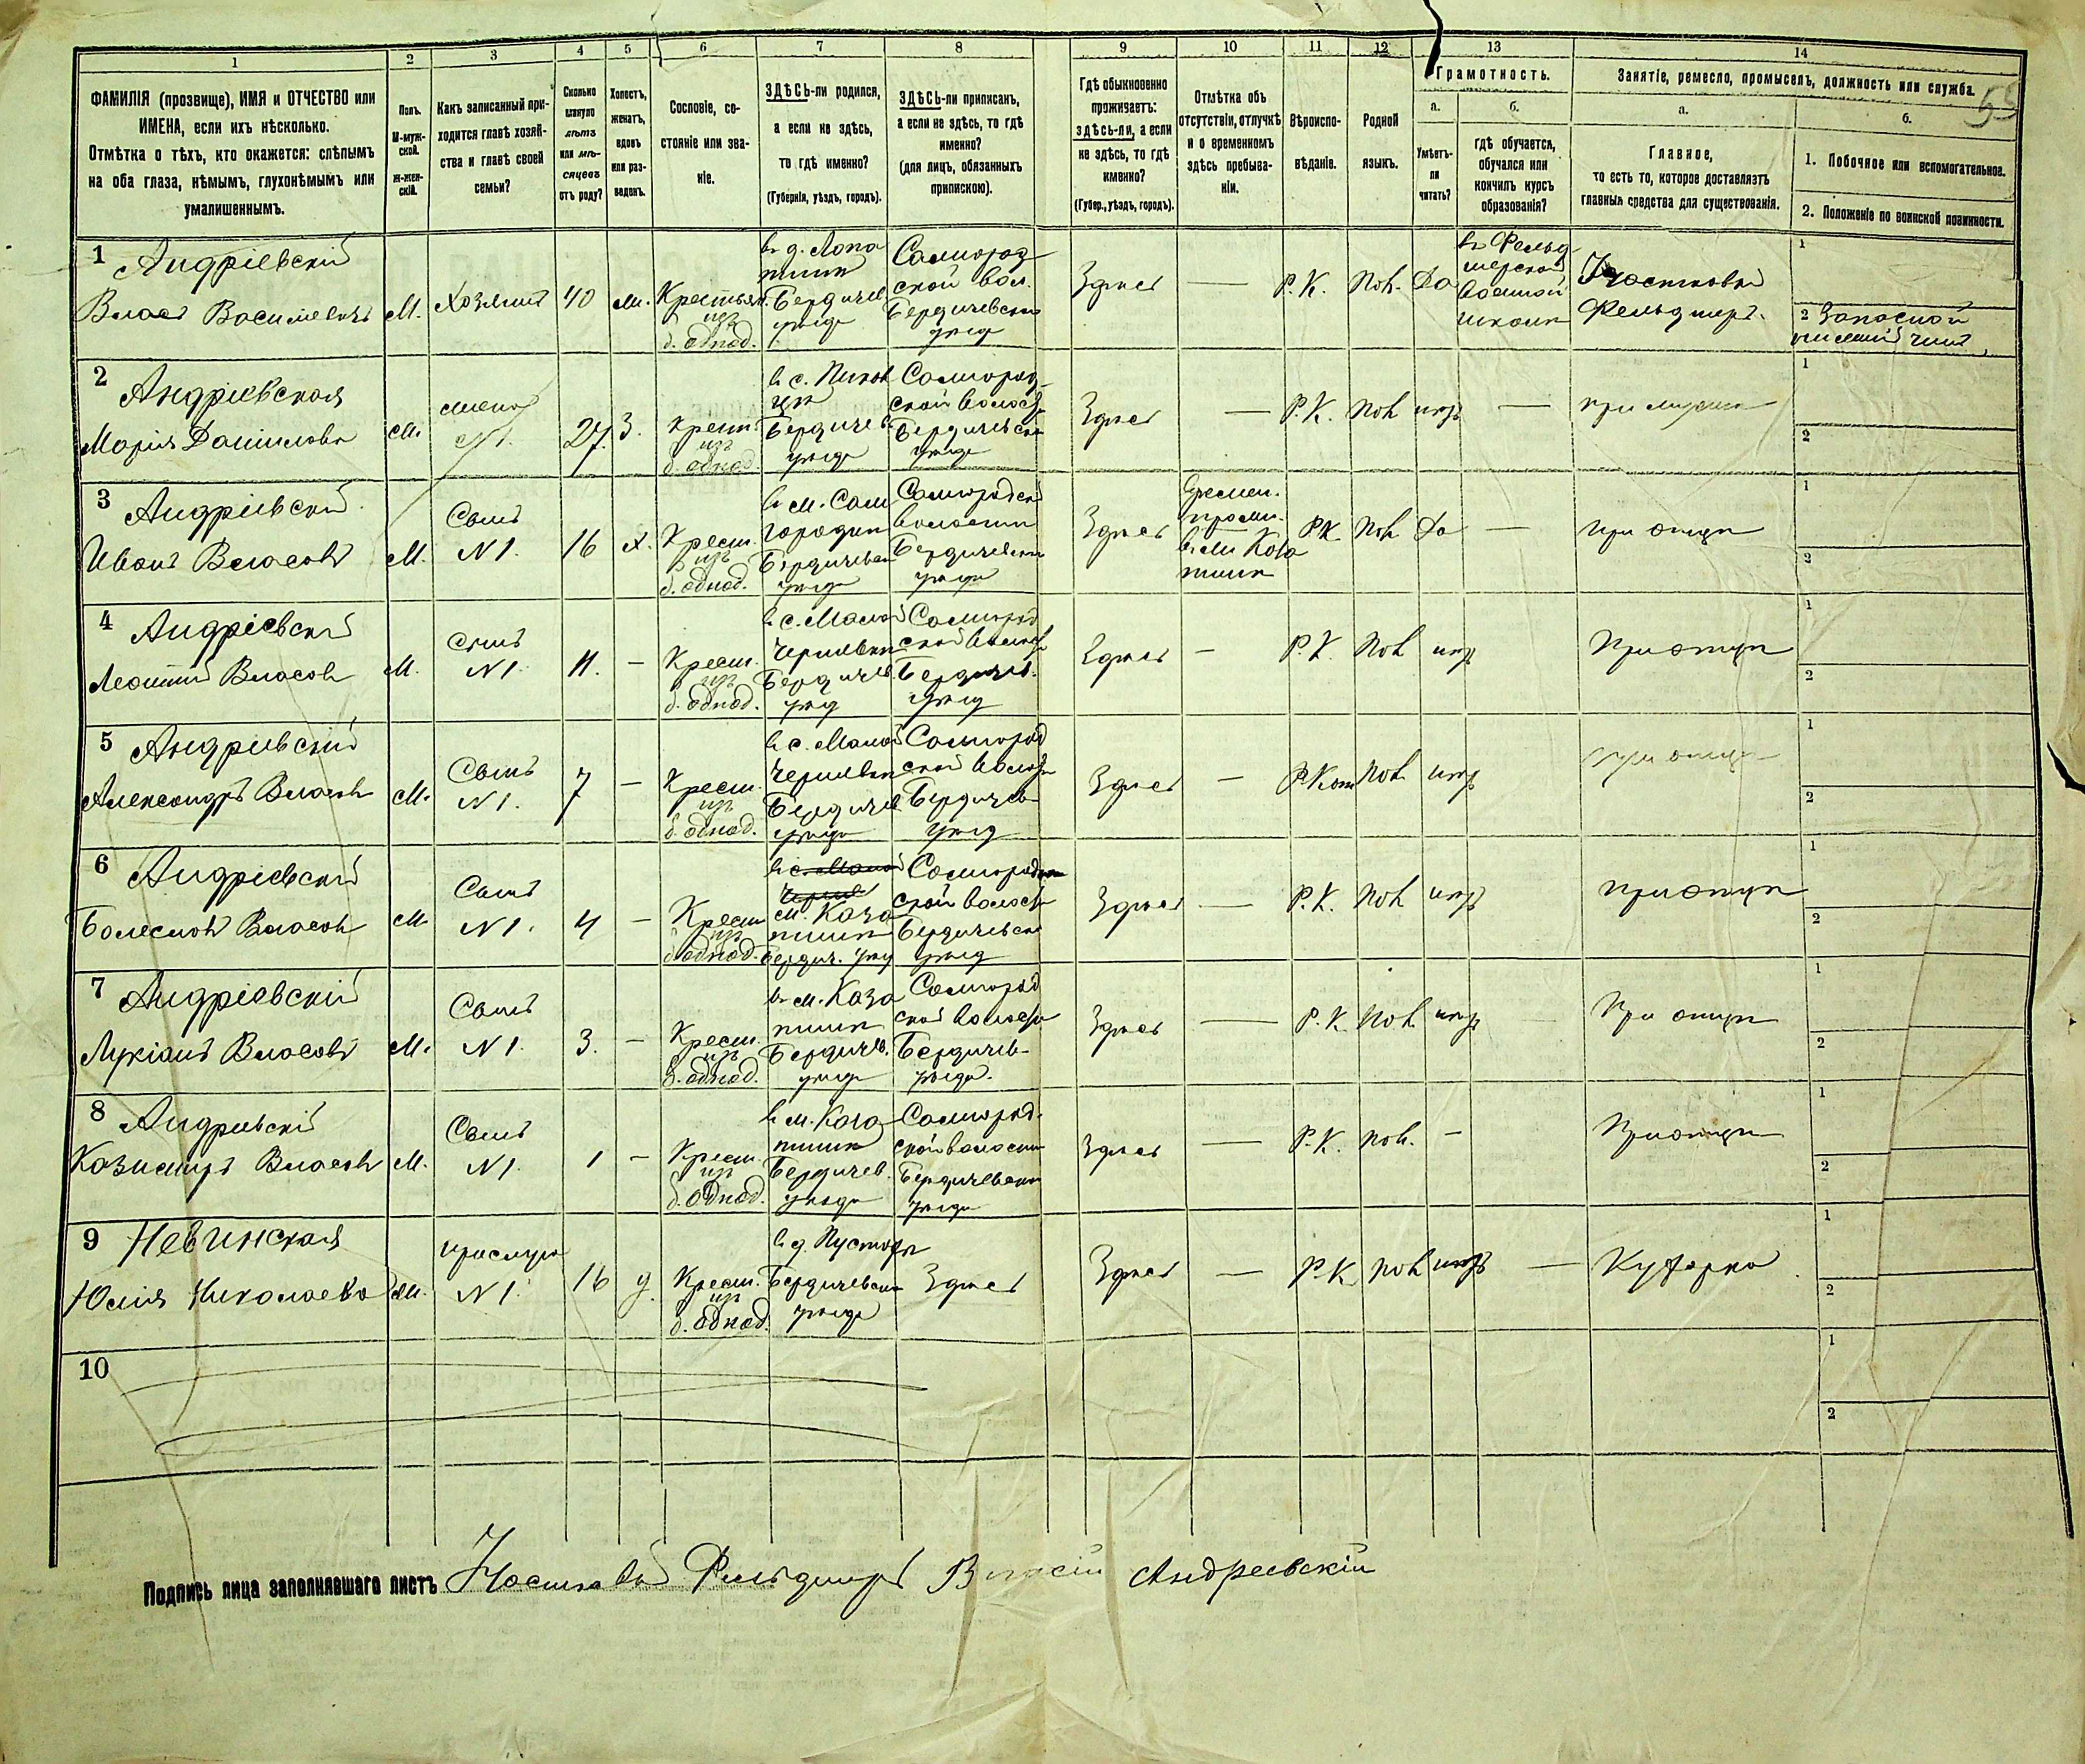 1 2 3 4 5 6 7 8 9 10 11 12 13 14
ФАМИЛІЯ (прозвище), ИМЯ и ОТЧЕСТВО или
ИМЕНА, если ихъ нѣсколько.
Отмѣтка о тѣхъ, кто окажется: слѣпымъ
на оба глаза, нѣмымъ, глухонѣмымъ или
умалишеннымъ.
Полъ.
М-муж-
ской.
Ж-жен-
скій.
Какъ записанный при-
ходится главѣ хозяй-
ства и главѣ своей
семьи?
Сколько
минуло
лѣтъ
или мѣ-
сяцевъ
отъ роду?
Холостъ,
женатъ,
вдовъ
или раз-
веденъ.
Сословіе, со-
стояніе или зва-
ніе.
ЗДѢСЬ-ли родился,
а если не здѣсь,
то гдѣ именно?
(Губернія, уѣздъ, городъ).
ЗДѢСЬ-ли приписанъ,
а если не здѣсь, то гдѣ
именно?
(для лицъ, обязанныхъ
припискою).
Гдѣ обыкновенно
проживаетъ:
здѣсь-ли, а если
не здѣсь, то гдѣ
именно?
(Губер., уѣздъ, городъ).
Отмѣтка объ
отсутствіи, отлучкѣ
и о временномъ
здѣсь пребыва-
ніи.
Вѣроиспо-
вѣданіе.
Родной
языкъ.
Грамотность.
а.
Умѣетъ-
ли
читать?
б.
гдѣ обучается,
обучался или
кончилъ курсъ
образованія?
Занятіе, ремесло, промыселъ, должность или служба.
а.
Главное,
то есть то, которое доставляетъ
главныя средства для существованія.
б.
1. Побочное или вспомогательное.
2. Положеніе по воинской повинности.
1 Андріевскій
Власъ Васильевичъ
М.
Хозяинъ
40
Бердичев
уѣзда
б. однод.
Самгород
ской вол.
Бердичевскаго
уѣзда
Здѣсь
—
Р. К.
Пол.
Да
въ Фельд
шерской
военной
школѣ
Участковый
Фельдшеръ.
1
2 Запасной
нижній чинъ
2 Андріевская
Марія Даниилова
жена
N 1.
27
З.
Крест.
изъ
б. однод
Бердичев
уѣзда
Самгород-
ской волости
Бердичевска
уѣзда
Здѣсь
—
Р. К.
Пол
нѣтъ
—
при мужѣ
1
2
3 Андріевскій
Иванъ Власовъ
М.
Сынъ
N 1.
16
Х.
Крест.
изъ
б. однод.
в м. Сам
городкѣ
Бердичевска
уѣзда
Самгородской
волости
Бердичевска
уѣзда
Здѣсь
Р К
Пол
Да
—
при отцѣ
1
2
4 Андріевскій
Леонтій Власовъ
М.
сынъ
N 1.
11.
—
Крест.
изъ
б. однод.
в с. Малой
Чернявкѣ
Бердичев.
уѣзд
Самгород
ской волости
Бердичев.
уѣзд
Здѣсь
—
Р. К.
Пол
нѣтъ
При отцѣ
1
2
5 Андріевскій
Александръ Власовъ
М.
Сынъ
N 1.
7
—
Крест.
изъ
б. однод.
в с. Малой
Чернявкѣ
Бердичев
уѣзда
Самгород
ской волости
Бердичев
уѣзд
Здѣсь
—
Пол.
нѣтъ
при отцѣ
1
2
6 Андріевскій
Болеслав Власовъ
М.
Сынъ
N 1.
4
—
Крест
изъ
б. однод.
в с. Малой
Черняв
м. Каза
тинѣ
Бердич. уѣз
ской волости
Бердичевска
уѣзд
Здѣсь
—
Р. К.
Пол
нѣтъ
при отцѣ
1
2
7 Андріевскій
Лукіанъ Власовъ
М.
Сынъ
N 1.
3.
—
Крест.
изъ
б. однод.
в м. Каза
тинѣ
Бердичев.
уѣзда
Самгород
ской волости
Бердичев-
уѣзда.
Здѣсь
—
Р. К.
Пол.
нѣтъ
При отцѣ
1
2
8 Андріевскій
Казиміръ Власовъ
М.
Сынъ
N 1.
1
—
Крест.
изъ
б. однод.
в м. Каза
тинѣ
Бердичев.
уѣзда
Самгород.
ской волости
Бердичевска
уѣзда
Здѣсь
—
Р. К.
Пол.
—
При отцѣ
1
2
9 Невинская
Юлія Николаева
прислуга
N 1.
16
Крест.
изъ
б. однод.
Бердичевска
уѣзда
Здѣсь
Здѣсь
—
Р. К
Пол
нѣтъ
—
Кухарка
1
2
10
1
2
Подпись лица заполнявшаго листъ Участковый Фельдшеръ Власій Андреевскій